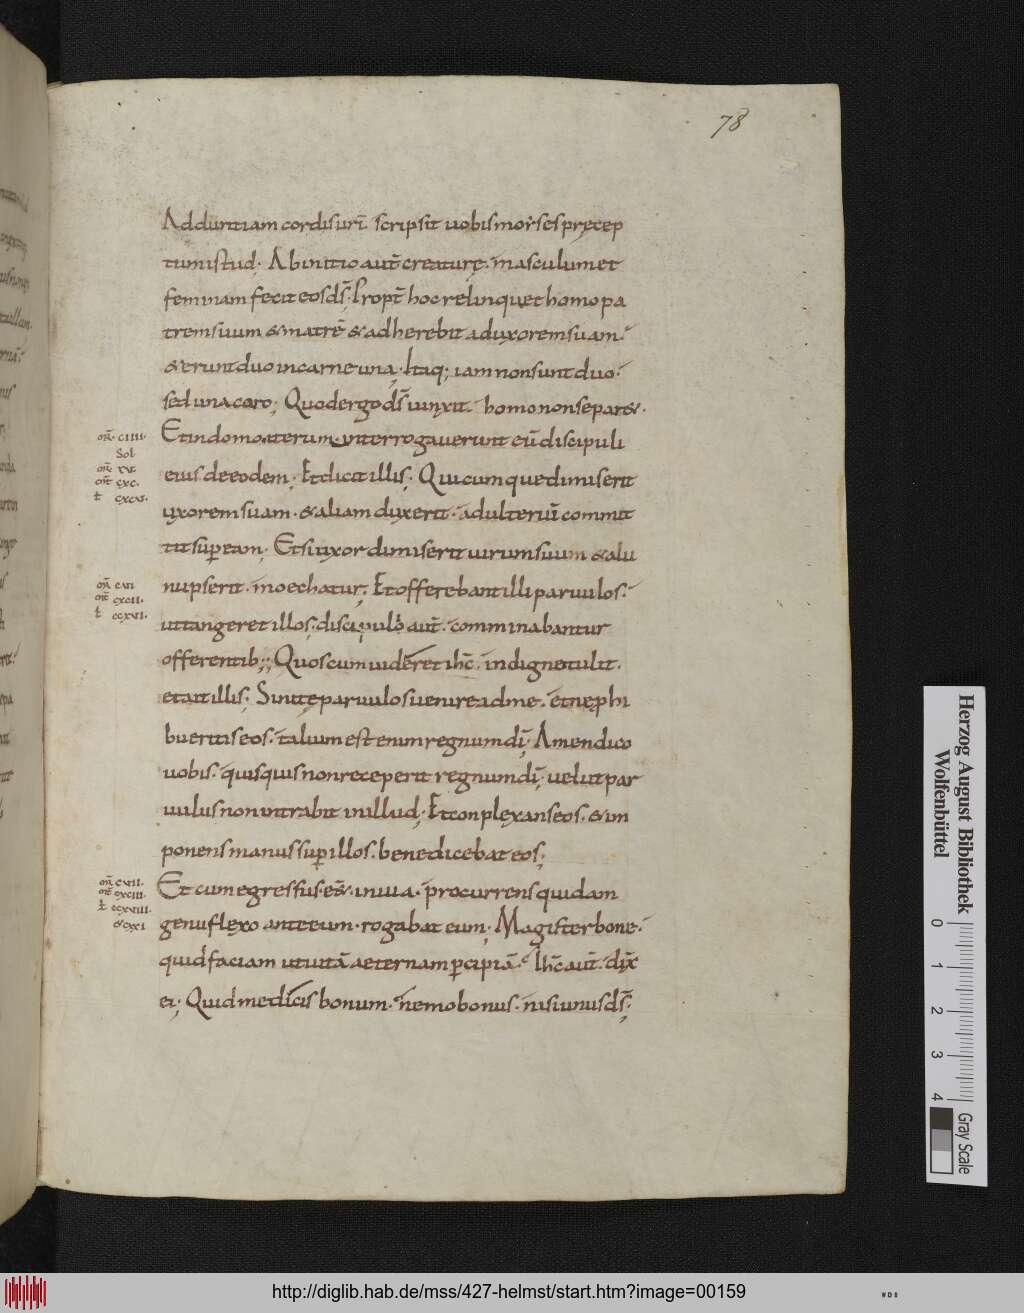 78
Adduritiam cordis uri̅ scripsit uobis moẏses prẹcep
tum istud; Ab initio aut̅ creaturę. masculum et
feminam fecit eos ds̅; Propt̅ hoc relinquet homo pa
trem suum & matre̅ & adherebit ad uxorem suam.
& erunt duo in carne una; Itaq; iam non sunt duo.
sed una caro; Quod ergo ds̅ iunxit. homo non separ&.
Et in domo iterum interrogauerunt eu̅ discipuli
eius de eodem; Et dicit illis; Quicumque dimiserit
uxorem suam. & aliam duxerit. adulteriu̅ commit
tit sup̅ eam; Et si uxor dimiserit uirum suum & alii
nupserit. moechatur; Et offerebant illi paruulos.
ut tangeret illos; discipuli aut̅. comminabantur
offerentib;; Quos cum uideret ihc̅. indigne tulit.
et ait illis; Sinite paruulos uenire ad me. et ne phi
bueritis eos. talium est enim regnum di̅; Amen dico
uobis. quisquis non receperit regnum di̅; uelut par
uulus non intrabit in illud; Et conplexans eos. & in
ponens manus sup̅ illos. benedicebat eos;
Et cum egressus es̅. in uia. procurrens quidam
genu flexo ante eum. rogabat eum; Magister bone.
quid faciam ut uita̅ aeternam p̅cipia̅. Ihc̅ aut̅. dix̅
ei; Quid me dicis bonum. nemo bonus. nisi unus ds̅;
om̅. ciiii.
Sol
om̅ cvi
om̅ cxcii.
l ccxvi.
om̅ cvii.
om̅ cxciii.
l ccxviii.
& cxxi
Herzog August Bibliothek
Wolfenbüttel
0 1 2 3 4
Gray Scale
http://diglib.hab.de/mss/427-helmst/start.htm?image=00159
WDB